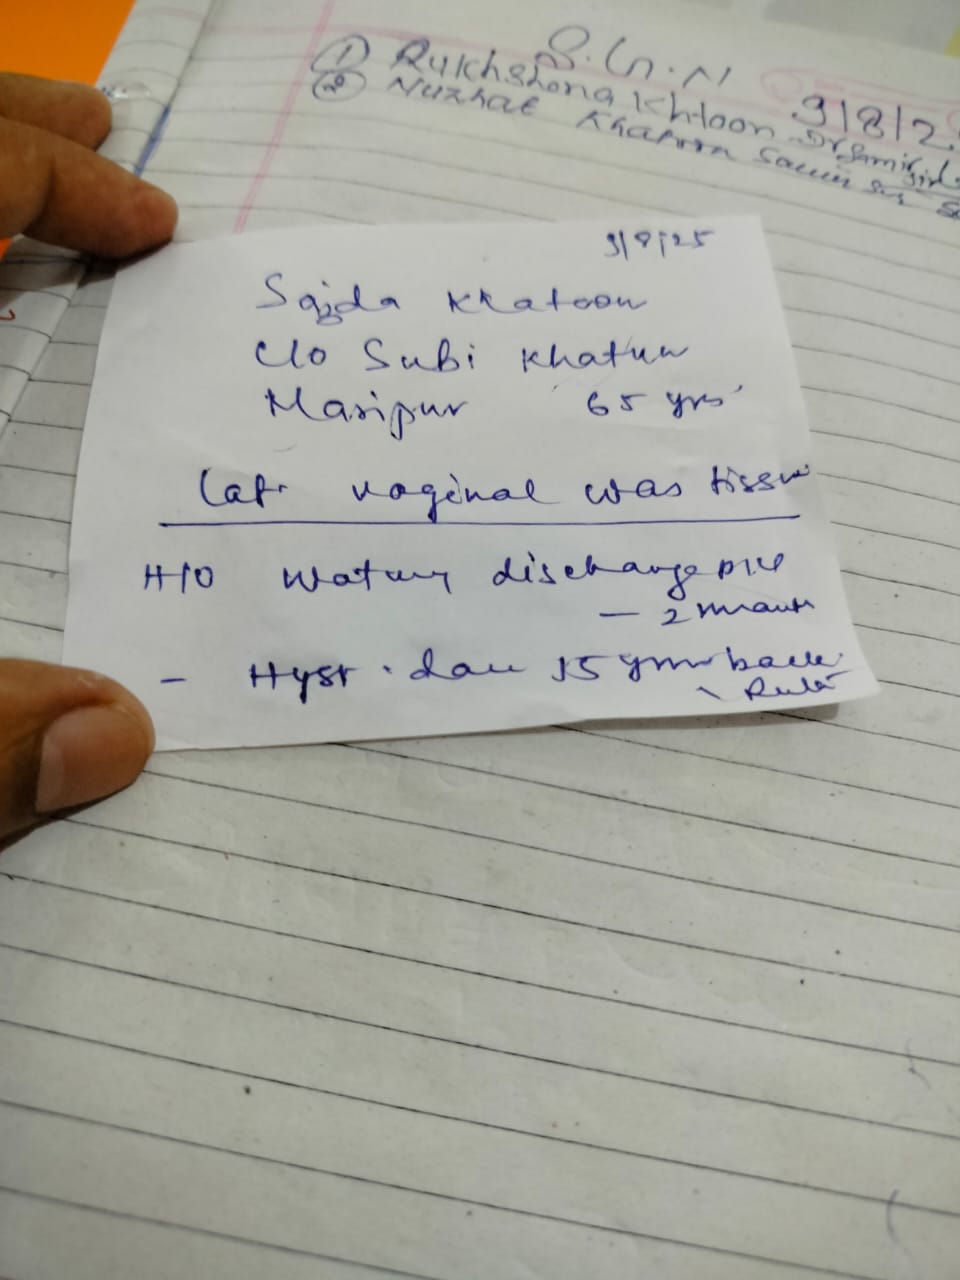 S.G.N
9/8/2
① Rukhshana Khtoon
② Nuzhat Khatoon
9/8/25
Sajda Khatoon
C/O Subi Khatun
Maripur 65 yrs
vaginal was tissue
H/O watery discharge P/V
- 2 month
- Hyst. done 15 years back